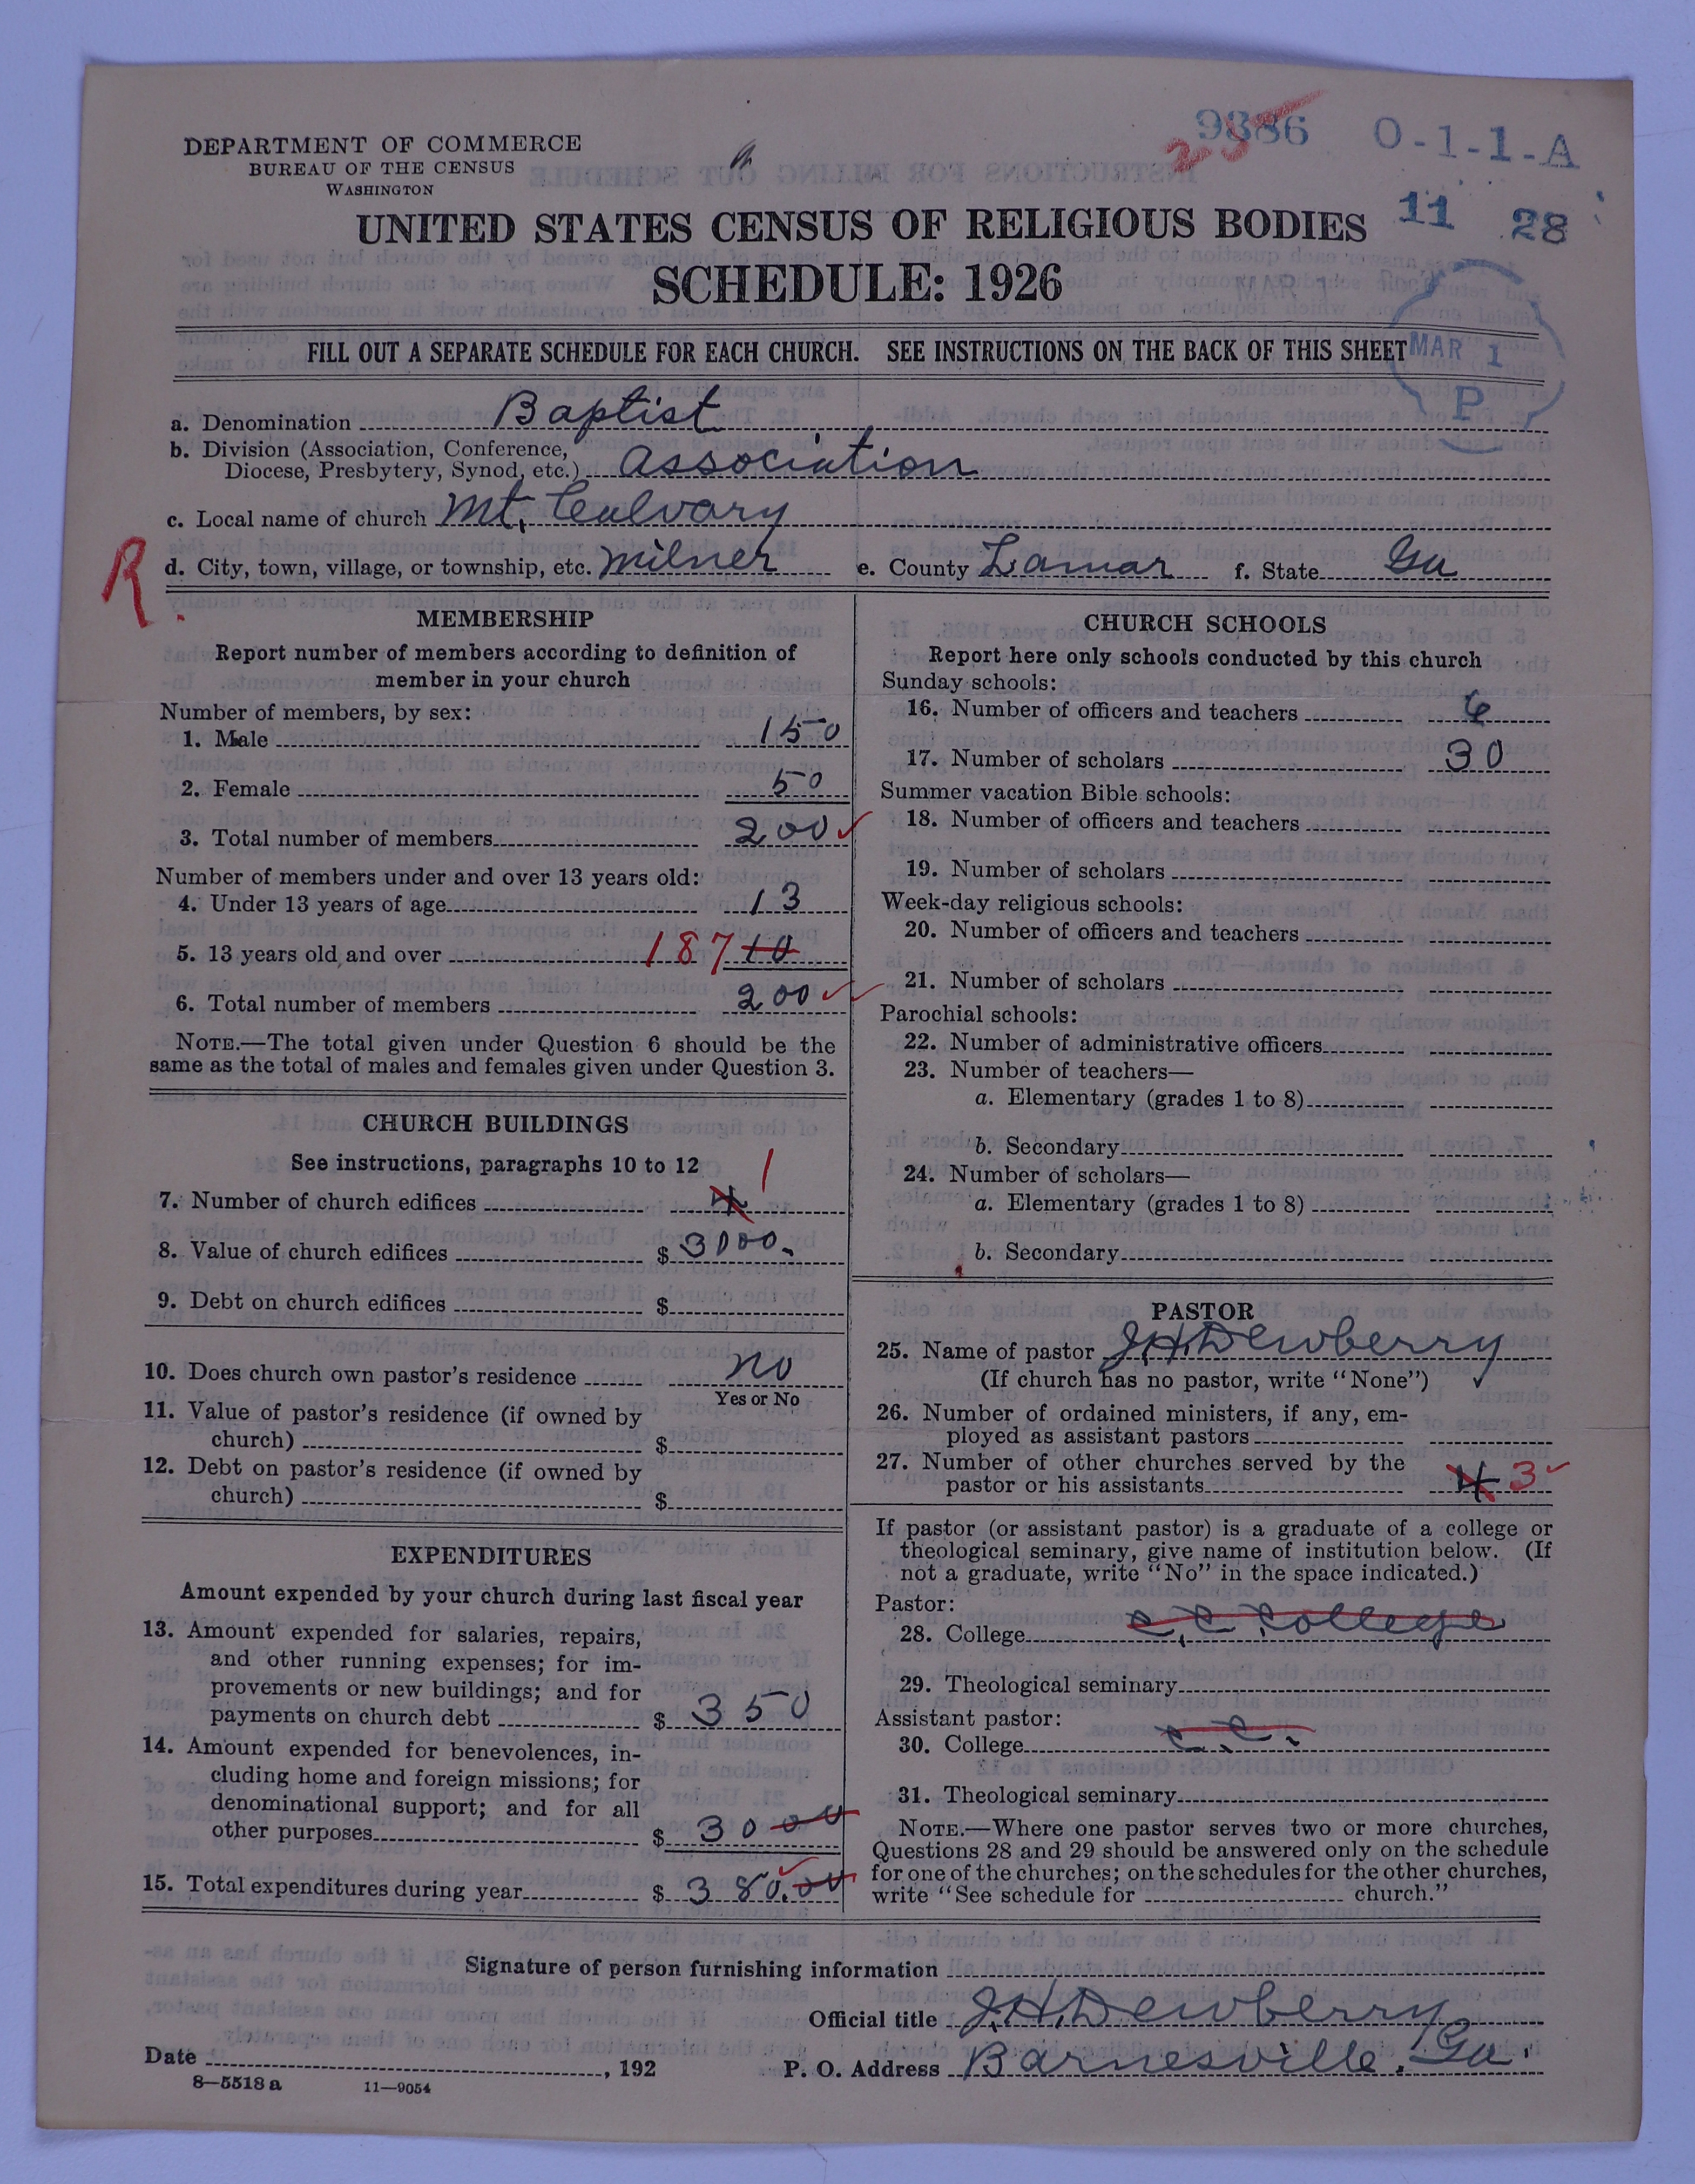 9886 O-1-1-A
235
DEPARTMENT OF COMMERCE
BUREAU OF THE CENSUS
WASHINGTON
11 28
UNITED STATES CENSUS OF RELIGIOUS BODIES
SCHEDULE: 1926
FILL OUT A SEPARATE SCHEDULE FOR EACH CHURCH. SEE INSTRUCTIONS ON THE BACK OF THIS SHEET
MAR 1
P
a. Denomination Baptist
b. Division (Association, Conference,
Diocese, Presbytery, Synod, etc.) Association
c. Local name of church Mt. Calvary
R. d. City, town, village, or township, etc. Milner e. County Lamar f. State Ga
MEMBERSHIP
Report number of members according to definition of
member in your church
Number of members, by sex:
1. Male 150
2. Female 50
3. Total number of members 200
Number of members under and over 13 years old:
4. Under 13 years of age 13
5. 13 years old and over 187 10
6. Total number of members 200
NOTE.—The total given under Question 6 should be the
same as the total of males and females given under Question 3.
CHURCH BUILDINGS
See instructions, paragraphs 10 to 12
7. Number of church edifices 4 1
8. Value of church edifices $ 3000.
9. Debt on church edifices $
10. Does church own pastor's residence no
Yes or No
11. Value of pastor's residence (if owned by
church) $
12. Debt on pastor's residence (if owned by
church) $
EXPENDITURES
Amount expended by your church during last fiscal year
13. Amount expended for salaries, repairs,
and other running expenses; for im-
provements or new buildings; and for
payments on church debt $ 350
14. Amount expended for benevolences, in-
cluding home and foreign missions; for
denominational support; and for all
other purposes $ 30 00
15. Total expenditures during year $ 380.00
CHURCH SCHOOLS
Report here only schools conducted by this church
Sunday schools:
16. Number of officers and teachers 6
17. Number of scholars 30
Summer vacation Bible schools:
18. Number of officers and teachers
19. Number of scholars
Week-day religious schools:
20. Number of officers and teachers
21. Number of scholars
Parochial schools:
22. Number of administrative officers
23. Number of teachers—
a. Elementary (grades 1 to 8)
b. Secondary
24. Number of scholars—
a. Elementary (grades 1 to 8)
b. Secondary
PASTOR
25. Name of pastor J.H. Dewberry
(If church has no pastor, write "None")
26. Number of ordained ministers, if any, em-
ployed as assistant pastors
27. Number of other churches served by the
pastor or his assistants 4 3
If pastor (or assistant pastor) is a graduate of a college or
theological seminary, give name of institution below. (If
not a graduate, write "No" in the space indicated.)
Pastor:
28. College C. C. College
29. Theological seminary
Assistant pastor:
30. College C. C.
31. Theological seminary
NOTE.—Where one pastor serves two or more churches,
Questions 28 and 29 should be answered only on the schedule
for one of the churches; on the schedules for the other churches,
write "See schedule for church."
Signature of person furnishing information
Official title J.H. Dewberry
Date , 192 P. O. Address Barnesville, Ga.
8—5518 a 11—9054